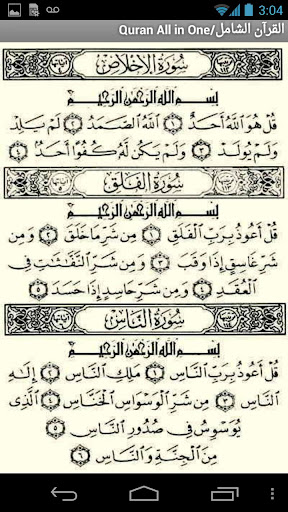 3:04
Quran All in One/القرآن الشامل
سُورَةُ الإِخْلَاصِ
بِسْمِ اللَّهِ الرَّحْمَٰنِ الرَّحِيمِ
قُلْ هُوَ اللَّهُ أَحَدٌ ١ اللَّهُ الصَّمَدُ ٢ لَمْ يَلِدْ
وَلَمْ يُولَدْ ٣ وَلَمْ يَكُن لَّهُ كُفُوًا أَحَدٌ ٤
سُورَةُ الْفَلَقِ
بِسْمِ اللَّهِ الرَّحْمَٰنِ الرَّحِيمِ
قُلْ أَعُوذُ بِرَبِّ الْفَلَقِ ١ مِن شَرِّ مَا خَلَقَ ٢ وَمِن
شَرِّ غَاسِقٍ إِذَا وَقَبَ ٣ وَمِن شَرِّ النَّفَّاثَاتِ فِي
الْعُقَدِ ٤ وَمِن شَرِّ حَاسِدٍ إِذَا حَسَدَ ٥
سُورَةُ النَّاسِ
بِسْمِ اللَّهِ الرَّحْمَٰنِ الرَّحِيمِ
قُلْ أَعُوذُ بِرَبِّ النَّاسِ ١ مَلِكِ النَّاسِ ٢ إِلَٰهِ
النَّاسِ ٣ مِن شَرِّ الْوَسْوَاسِ الْخَنَّاسِ ٤ الَّذِي
يُوَسْوِسُ فِي صُدُورِ النَّاسِ ٥
مِنَ الْجِنَّةِ وَالنَّاسِ ٦